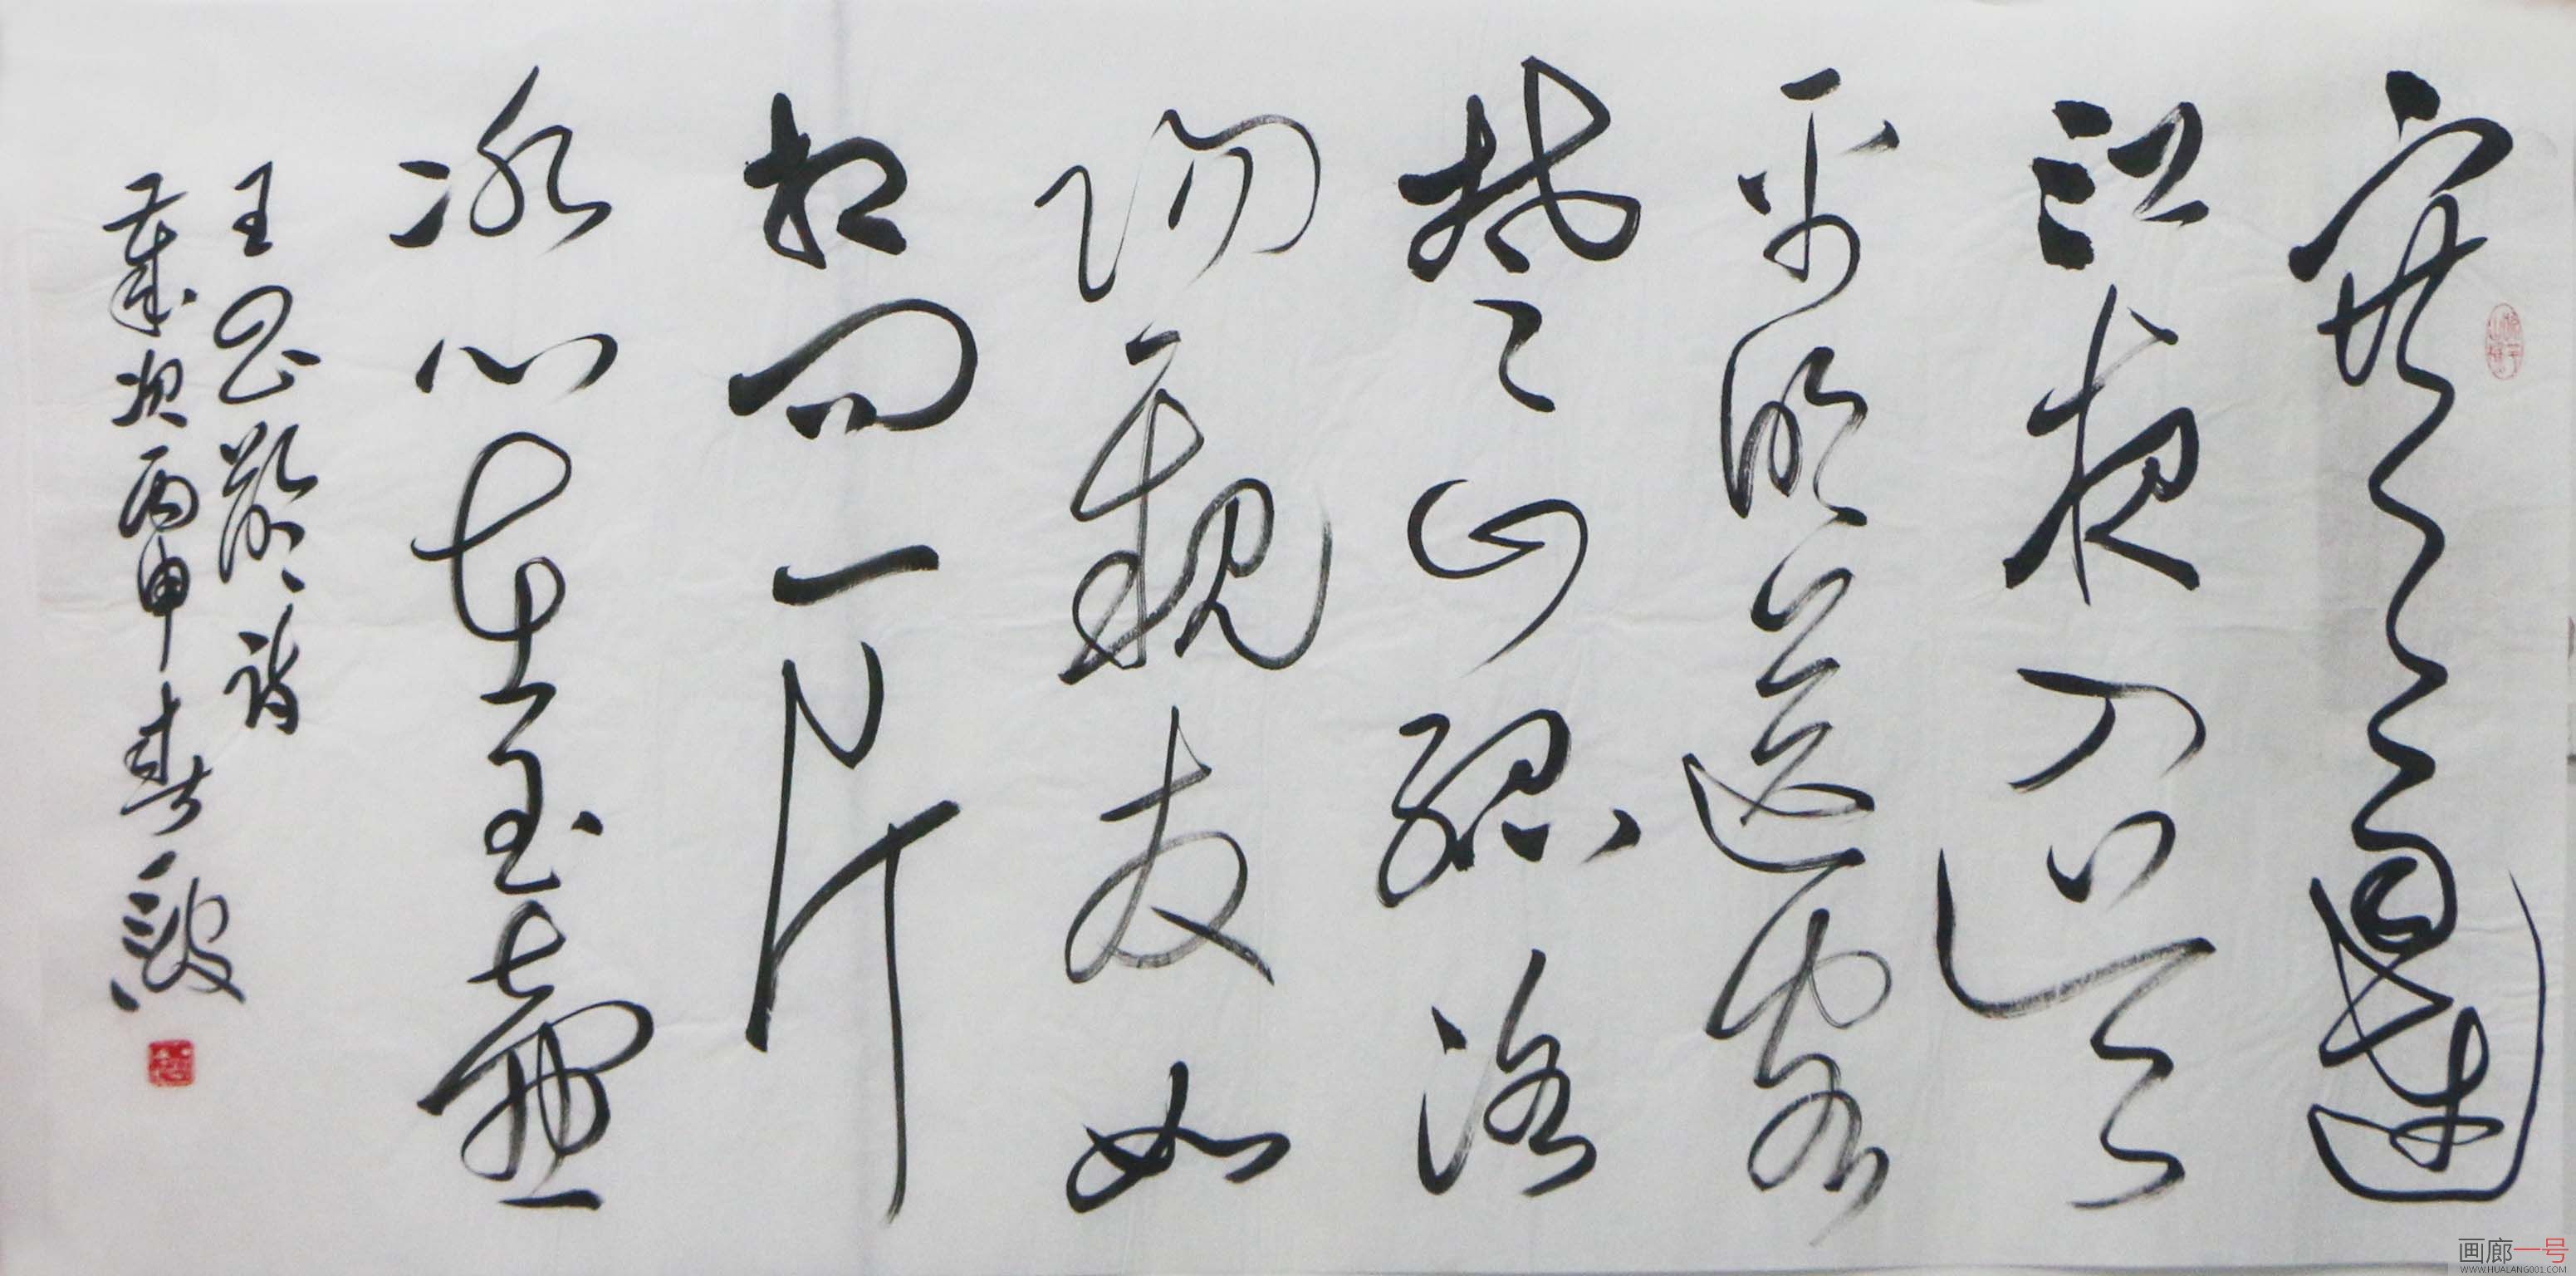 寒雨連
江夜入吳
平明送客
楚山孤洛
陽親友如
相問一片
冰心在玉壺
王昌齡詩
歲次丙申春
画廊一号
WWW.HUALANG001.COM